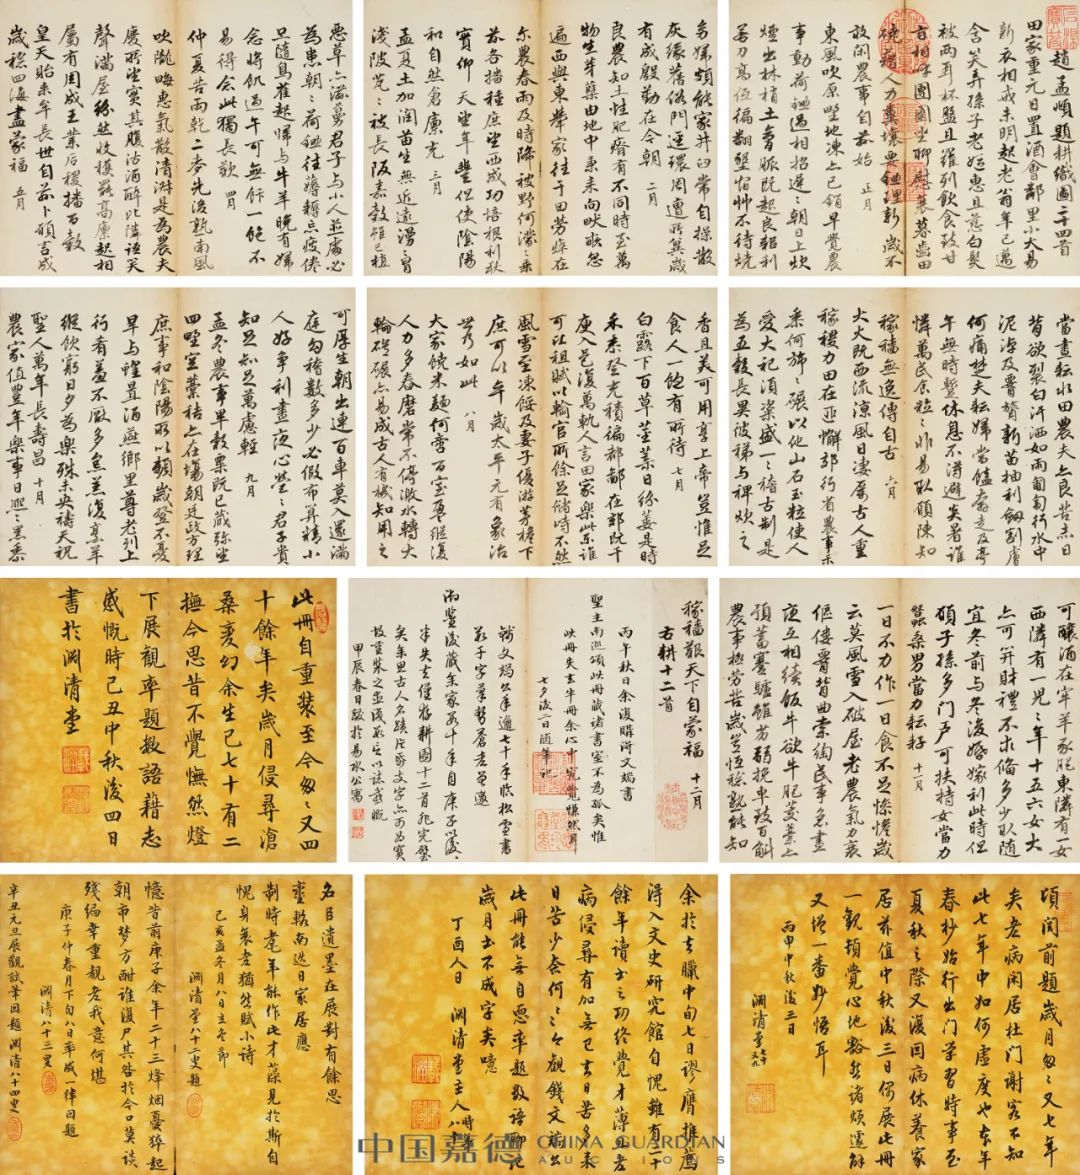 趙孟頫題耕織圖二十四首
田家重元日置酒會鄰里小大易
新衣相戒未明起老翁年已邁
含笑弄孫子老嫗惠且慈白髮
被兩耳杯盤且羅列飲食致甘
旨相呼團團坐聊慰衰暮齒田
硗藉人力糞壤要鋤理新歲不
敢閑農事自茲始 正月
東風吹原野地凍亦已銷早覺農
事動荷鋤過相招遲遲朝日上炊
煙出林梢土膏脈既起良耜利
若刀高低遍翻墾宿草不待燒
幼婦頗能家井臼常自操散
灰緣舊俗門逕環周遭所冀歲
有成殷勤在今朝 二月
良農知土性肥瘠有不同時至萬
物生芽蘖由地中秉耒向畎畝忽
遍西與東舉家往于田勞瘁在
尔農春雨及時降被野何濛濛乘
茲各播種庶望西成功培根利秋
實仰天望年豐但使陰陽
和自然倉廩充 三月
孟夏土加潤苗生無近遠漫漫冒
淺陂芃芃被長阪嘉穀雖已植
惡草亦滋蔓君子與小人並處必
為患朝朝荷鋤往薅耨忘疲倦
旦隨鳥雀起歸與牛羊晚有婦
念將飢過午可無飯一飽不
易得念此獨長歎 四月
仲夏苦雨乾二麥先後熟南風
吹隴畝惠氣散清淑是為農夫
慶所望實其腹沽酒醉比隣語笑
聲滿屋紛然收穫罷高廩起相
屬有周成王業后稷播百穀
皇天貽來牟長世自茲卜願言成
歲稔四海盡蒙福 五月
當晝耘水田農夫亦良苦赤日
背欲裂白汗洒如雨匍匐行水中
泥淖及腰膂新苗抽利劍割膚
何痛楚夫耘婦當饁奔走及亭
午無時暫休息不得避炎暑誰
憐萬民食粒粒非易取願陳知
稼穡無逸傳自古 六月
大火既西流涼風日淒厲古人重
稼穡力田在匪懈郊行省農事禾
黍何旆旆碾以他山石玉粒使人
愛大祀須粢盛一一稽古制是
為五穀長異彼稊與稗炊之
香且美可用享上帝豈惟足
食人一飽有所待 七月
白露下百草莖葉日紛委是時
禾黍登充積徧都鄙在郊既千
庾入邑復萬軌人言田家樂此樂誰
可比租賦以輸官所餘足儲峙不然
風雪至凍餒及妻子優游茅簷下
庶可以卒歲太平元有象治
世乃如此 八月
大家饒米麵何啻百室盈縱復
人力多舂磨常不停激水轉大
輪磑碾亦易成古人有機知用之
可厚生朝出連百車莫入還滿
庭勾稽數多少必假布算精小
人好爭利晝夜心營營君子貴
知足知足萬慮輕 九月
孟冬農事畢穀粟既已藏彌望
四野空藁秸亦在場朝廷政方理
庶事和陰陽所以頻歲登不憂
旱與蝗置酒燕鄉里尊老列上
行肴羞不厭多炰羔復烹羊
縱飲窮日夕為樂殊未央禱天祝
聖人萬年長壽昌 十月
農家值豐年樂事日熙熙黑黍
可釀酒在牢羊豕肥東隣有一女
西隣有一兒兒年十五六女大
亦可笄財禮不求備多少取隨
宜冬前與冬後婚嫁利此時但
願子孫多門戶可扶持女當力
蠶桑男當力耘耔 十一月
一日不力作一日食不足慘慘歲
云莫風雪入破屋老農氣力衰
傴僂腰背曲索綯民事急晝
夜互相續飯牛欲牛肥茭藁亦
預蓄蹇驢雖劣弱挽車致百斛
農事極勞苦歲豈恆稔熟能知
稼穡艱天下自蒙福 十二月
右耕十二首
丙午秋日余復購得文端書
聖主南巡頌此冊藏諸書室不為孤矣惟
此冊失去半冊余心中究覺慊然耳
七夕後一日隨筆記
錢文端公年逾七十手臨松雪書
數千字筆勢蒼老曾邀
御鑒後藏余家數十年自庚子以後
半失去僅存耕圖十二首非完璧
矣第思古人名蹟片帋隻字亦可為寶
故重裝之並後數言以誌感慨
甲辰春日跋於易水公寓
此冊自重裝至今匆匆又四
十餘年矣歲月侵尋滄
桑變幻余生已七十有二
撫今思昔不覺憮然燈
下展觀率題數語藉志
感慨時己丑中秋後四日
書於淵清堂
頃閱前題歲月匆匆又七年
矣老病閑居杜門謝客不知
此七年中如何虛度也本年
春杪始行出門學習時事至
夏秋之際又復因病休養家
居茲值中秋後三日偶展此冊
一觀頓覺心地豁然諸煩遽解
又增一番妙悟耳
丙申中秋後三日
淵清叟七十又九
余於去臘中旬七日謬膺推薦
得入文史研究館自愧雖有二十
餘年讀書之功終覺才薄且老
病侵尋有加無已去日苦多來
日苦少奈何奈何今觀錢文端公
此冊能無自恧率題數語聊記
歲月書不成字矣噫
丁酉人日 淵清堂主人時年八十
名臣遺墨在展對有餘思
靈軼南巡日家居應
制時耄年能作此才藻見於斯自
愧身衰老猶然賦小詩
己亥孟冬月八日立冬節
淵清叟八十二叟題
憶昔前庚子余年二十三烽烟憂猝起
朝市夢方酣誰復尸其咎於今口莫談
殘編幸重覩老我意何堪
庚子仲春月下旬八日率成一律因題
淵清八十三叟
辛丑元旦展觀試筆因題淵清八十四叟
中国嘉德
CHINA GUARDIAN
AUCTIONS